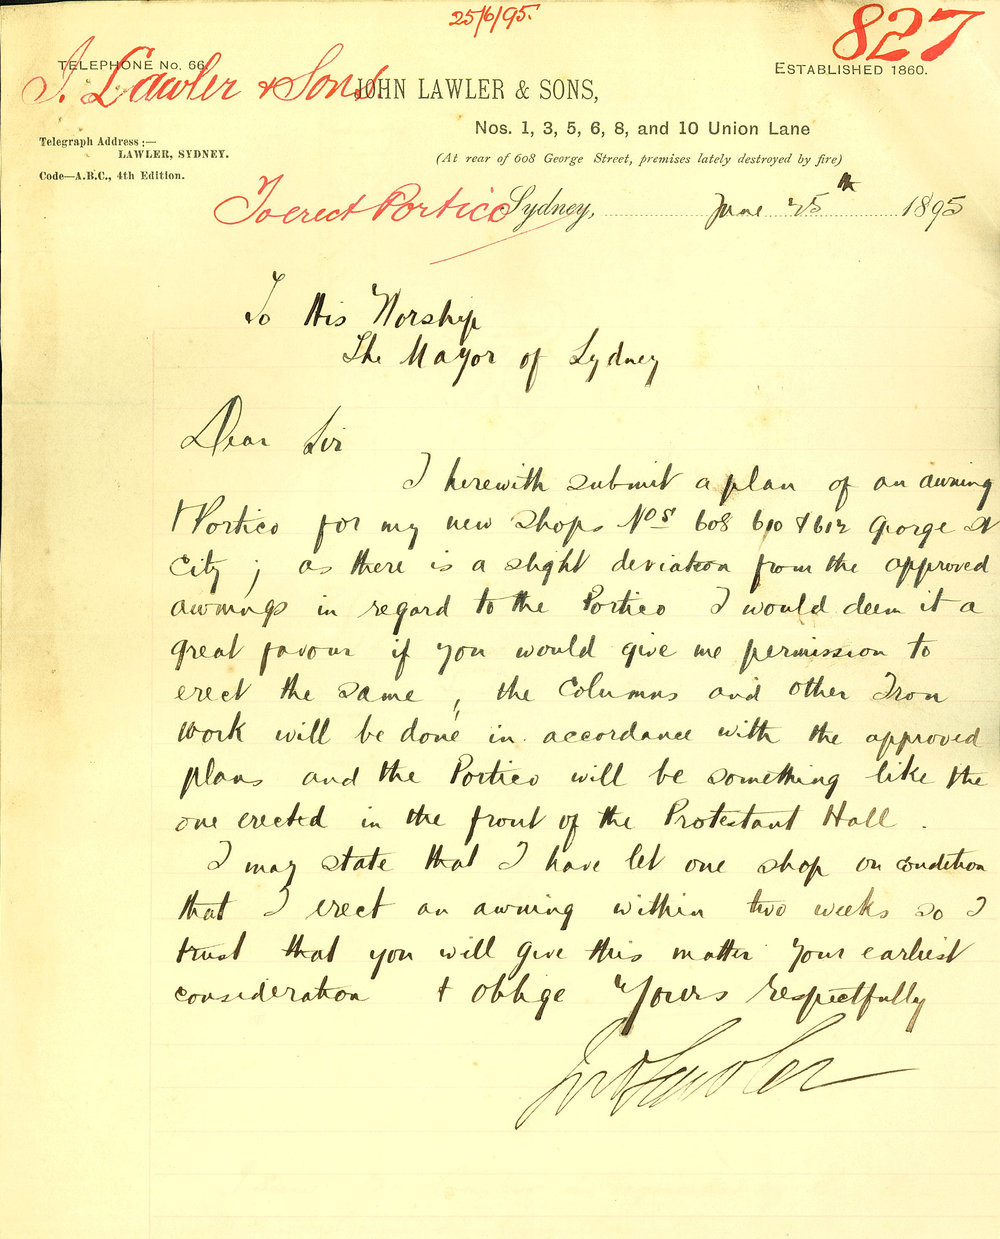 25/6/95.
827
TELEPHONE No. 66.
ESTABLISHED 1860.
J. Lawler & Sons
JOHN LAWLER & SONS,
Nos. 1, 3, 5, 6, 8, and 10 Union Lane
Telegraph Address:—
LAWLER, SYDNEY.
(At rear of 608 George Street, premises lately destroyed by fire)
Code—A.B.C., 4th Edition.
To erect Portico
Sydney, June 25th 1895
To His Worship
The Mayor of Sydney
Dear Sir
I herewith submit a plan of an awning
& Portico for my new shops Nos 608 610 & 612 George St
City ; as there is a slight deviation from the approved
awnings in regard to the Portico I would deem it a
great favour if you would give me permission to
erect the same , the Columns and other Iron
work will be done in accordance with the approved
plans and the Portico will be something like the
one erected in the front of the Protestant Hall .
I may state that I have let one shop on condition
that I erect an awning within two weeks so I
trust that you will give this matter your earliest
consideration & oblige Yours respectfully
Jno Lawler